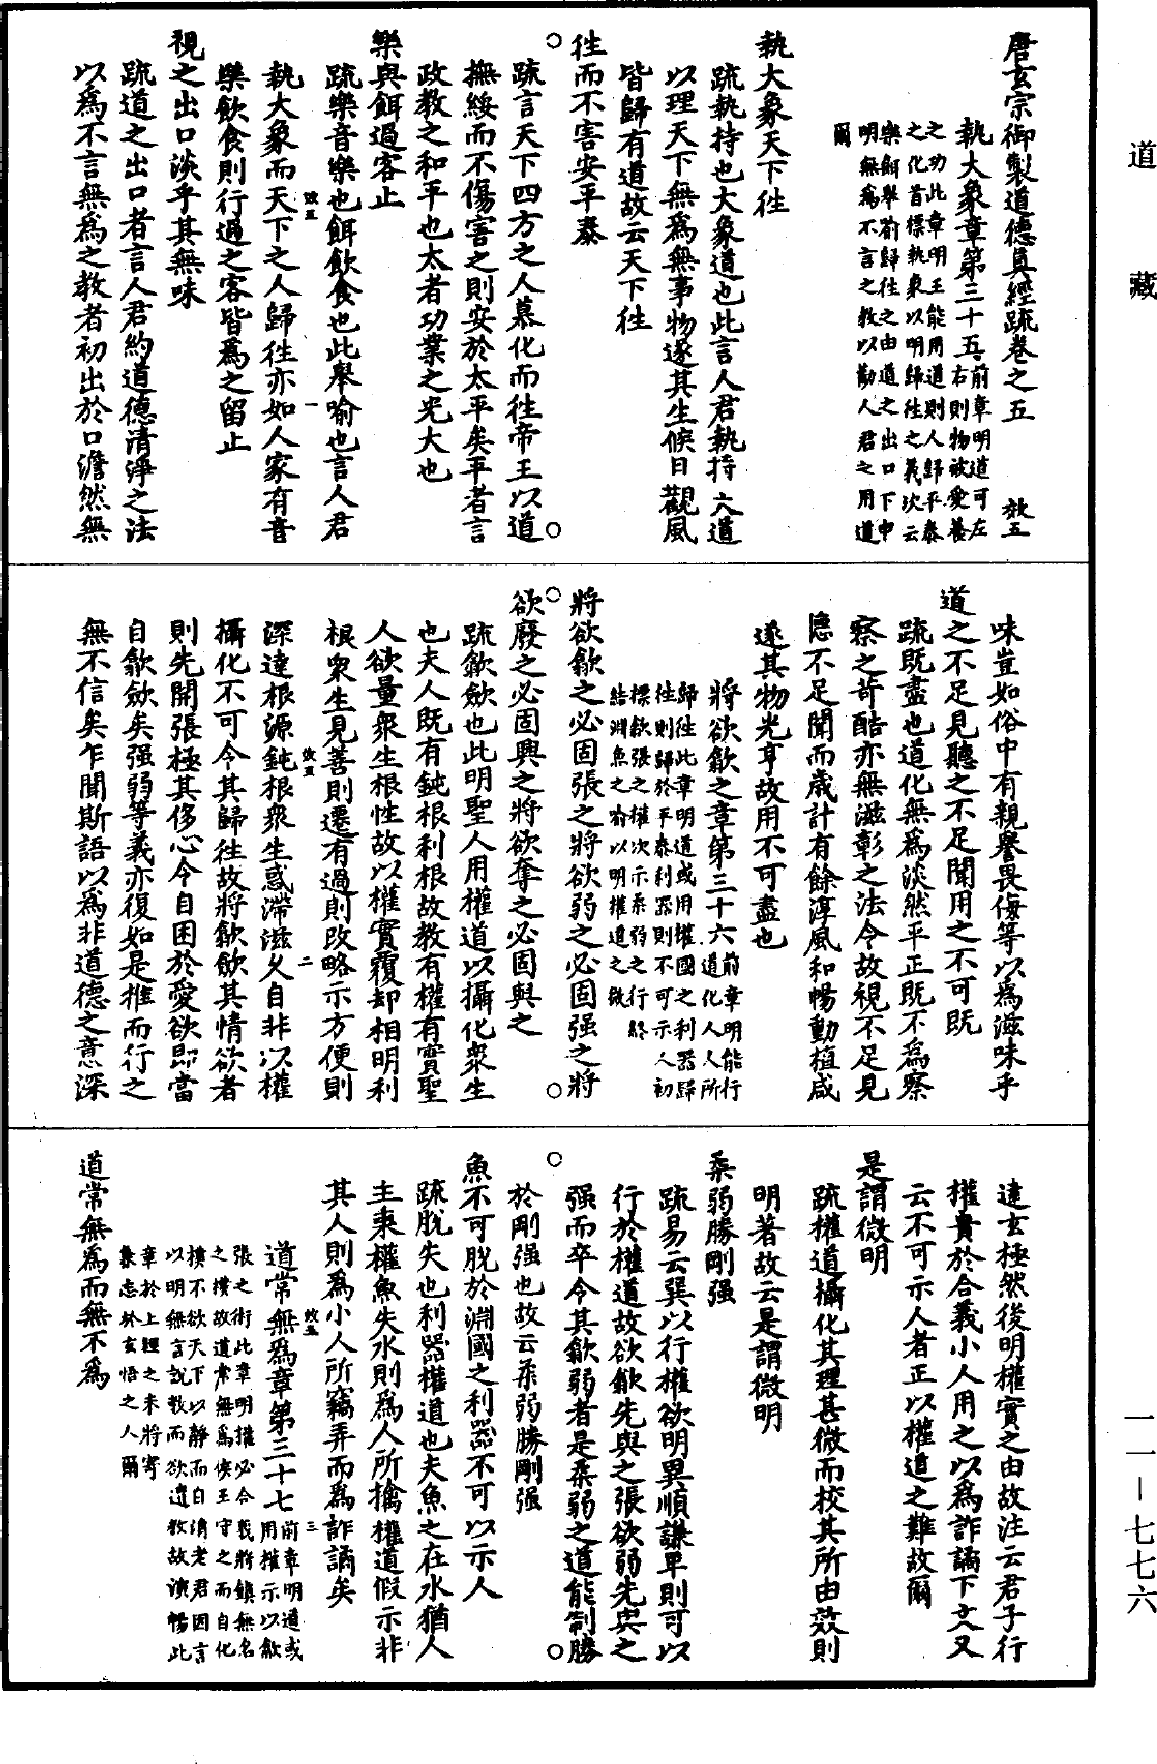 道藏
唐玄宗御製道德眞經疏卷之五　效五
執大象章第三十五前章明道可左右則物被愛養
之功此章明王能用道則人歸平泰
之化首標執象以明歸往之義次云
樂餌舉前歸往之由道之出口下申
明無爲不言之教以勸人君之用道
爾
執大象天下往
疏執持也大象道也此言人君執持大道
以理天下無爲無事物遂其生候日觀風
皆歸有道故云天下往
往而不害安平泰
疏言天下四方之人慕化而往帝王以道
撫綏而不傷害之則安於太平矣平者言
政教之和平也太者功業之光大也
樂與餌過客止
疏樂音樂也餌飲食也此舉喻也言人君
效五　一
執大象而天下之人歸往亦如人家有音
樂飲食則行過之客皆爲之留止
視之出口淡乎其無味
疏道之出口者言人君約道德清淨之法
以爲不言無爲之教者初出於口澹然無
味豈如俗中有親譽畏侮等以爲滋味乎
道之不足見聽之不足聞用之不可既
疏既盡也道化無爲淡然平正既不爲察
察之苛酷亦無滋彰之法令故視不足見
隱不足聞而歲計有餘淳風和暢動植咸
遂其物光亨故用不可盡也
將欲歙之章第三十六前章明能行道化人人所
歸往此章明道或用權國之利器歸
往則歸於平泰利器則不可示人初
標歙張之權次示柔弱之行終
結淵魚之喻以明權道之微
將欲歙之必固張之將欲弱之必固强之將
欲廢之必固興之將欲奪之必固與之
疏歙斂也此明聖人用權道以攝化衆生
也夫人既有鈍根利根故教有權有實聖
人欲量衆生根性故以權實覆却相明利
根衆生見善則遷有過則改略示方便則
效五　二
深達根源鈍根衆生惑滯滋久自非以權
攝化不可令其歸往故將歙歛其情欲者
則先開張極其侈心令自困於愛欲即當
自歙斂矣强弱等義亦復如是推而行之
無不信矣乍聞斯語以爲非道德之意深
達玄極然後明權實之由故注云君子行
權貴於合義小人用之以爲詐譎下文又
云不可示人者正以權道之難故爾
是謂微明
疏權道攝化其理甚微而校其所由效則
明著故云是謂微明
柔弱勝剛强
疏易云巽以行權欲明異順謙卑則可以
行於權道故欲歙先與之張欲弱先與之
强而卒令其歙弱者是柔弱之道能制勝
於剛强也故云柔弱勝剛强
魚不可脫於淵國之利器不可以示人
疏脫失也利器權道也夫魚之在水猶人
主秉權魚失水則爲人所擒權道假示非
其人則爲小人所竊弄而爲詐譎矣
效五　三
道常無爲章第三十七前章明道或用權示以歙
張之術此章明權必合義將鎮無名
之樸故道常無爲侯王守之而自化
樸不欲天下以靜而自清老君因言
以明無言說教而欲遺教故演暢此
章於上經之末將寄
兼忘於玄悟之人爾
道常無爲而無不爲
一一—七七六